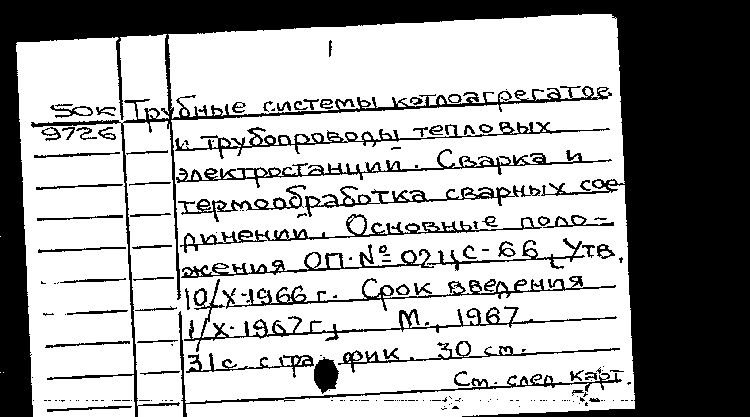 1
50к Трубные системы котлоагрегатов
9726 и трубопроводы тепловых
электростанций. Сварка и
термообработка сварных сое-
динений. Основные поло-
жения ОП № 02ЦС-66, Утв.
10/X-1966 г. Срок введения
1/X-1967 г., М., 1967.
31 с. с график. 30 см.
См. след. карт.